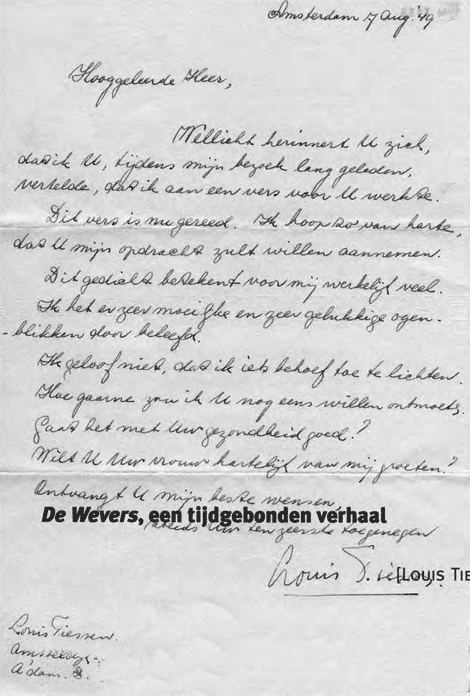 Amsterdam 7 Aug. '49
Hooggeleerde Heer,
Wellicht herinnert U zich,
dat ik U, tijdens mijn bezoek lang geleden,
vertelde, dat ik aan een vers voor U werkte.
Dit vers is nu gereed. Ik hoop zo van harte,
dat U mijn opdracht zult willen aannemen.
Dit gedicht betekent voor mij werkelijk veel.
Ik heb er zeer moeilijke en zeer gelukkige ogen-
blikken door beleefd.
Ik geloof niet, dat ik iets behoef toe te lichten.
Hoe gaarne zou ik U nog eens willen ontmoeten.
Gaat het met Uw gezondheid goed?
Wilt U Uw vrouw hartelijk van mij groeten?
Ontvangt U mijn beste wensen,
De Wevers, een tijdgebonden verhaal
steeds Uw ten zeerste toegenegen
Louis Tiessen.
[LOUIS TIE
Louis Tiessen.
A'dam. Z.